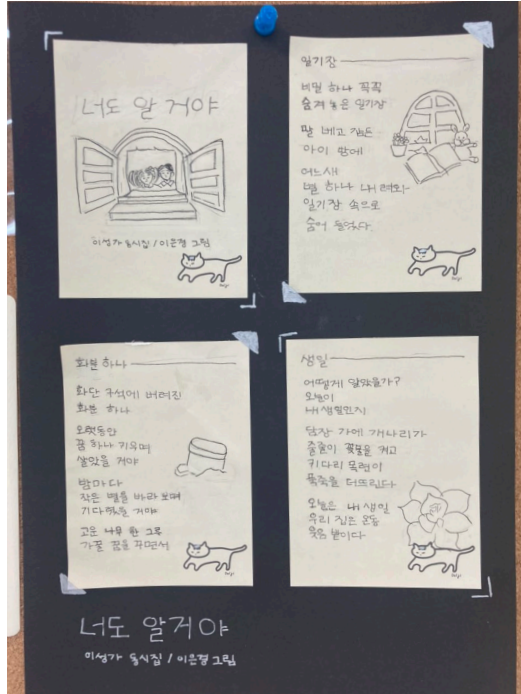 너도 알 거야
이성자 동시집 / 이은경 그림
일기장
비밀 하나 꼭꼭
숨겨 놓은 일기장
팔 베고 잠든
아이 방에
어느새
별 하나 내려와
일기장 속으로
숨어 들었다.
화분 하나
화단 구석에 버려진
화분 하나
오랫동안
꿈 하나 키우며
살았을 거야
밤마다
작은 별을 바라보며
기다렸을 거야
고운 나무 한 그루
가꿀 꿈을 꾸면서
생일
어떻게 알았을까?
오늘이
내 생일인지
담장 가에 개나리가
줄줄이 꽃불을 켜고
키다리 목련이
폭죽을 터뜨린다
오늘은 내 생일
우리 집은 온통
웃음 밭이다
너도 알거야
이성자 동시집 / 이은경 그림